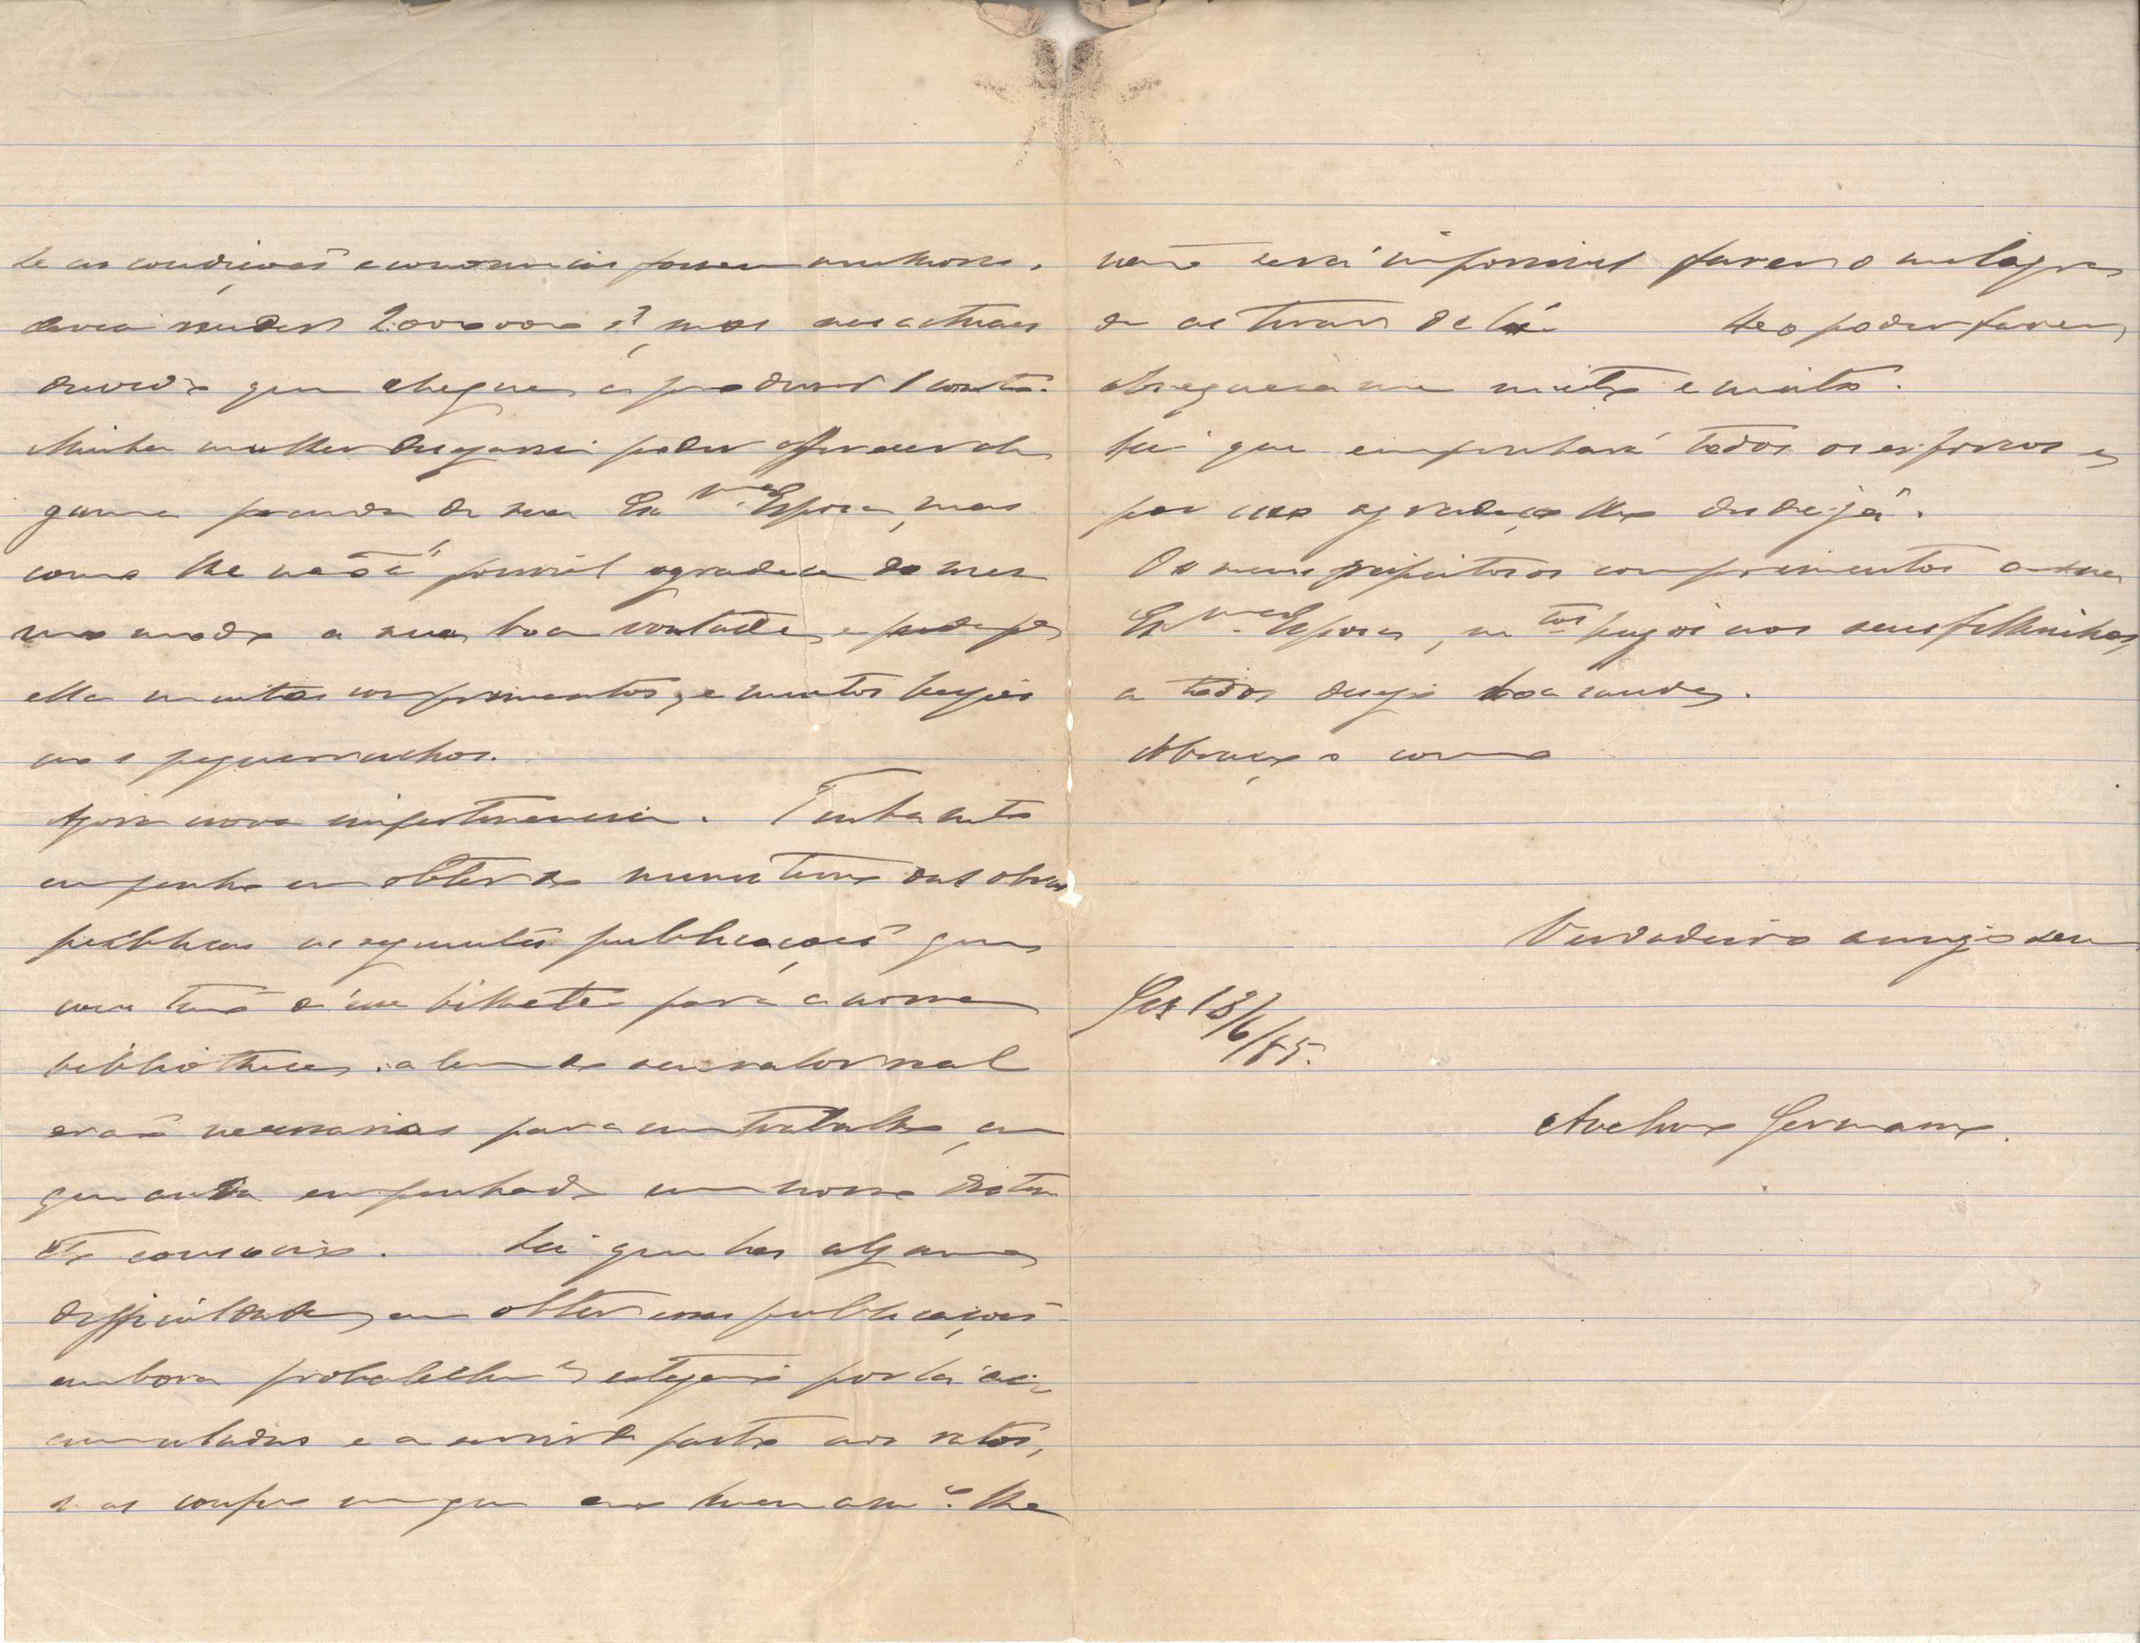 se as condições economicas fossem melhores,
devia render 2.000000 rs, mas nas actuaes
duvido que chegue a produzir 1 conto.
Minha mulher desejaria poder offerecer al
guma prenda de sua Ex.ma Esposa, mas
como lhe não é possivel agradece do mes
mo modo a sua boa vontade, e pede p.a
ella muitos comprimentos, e muitos beijos
aos pequerruchos.
Agora nova impertinencia. Tenho muito
empenho em obter do ministerio das obras
publicas as seguintes publicações que
constão d'um bilhete para a nossa
bibliotheca: alem do seu valor real
erão necessarias para um trabalho, em
que anda empenhado um nosso distin
cto consocio. Sei que ha alguma
difficuldade, em obter essas publicações
embora probabelm.e estejão por lá ac
cumuladas e a servir de pasto aos ratos,
e as confio em que ao homem lhe
não será impossivel fazer o milagre
de as tirar de lá Se o poder fazer,
obsequeia-me muito e muito.
Sei que empenhará todos os esforços e
por isso agradeço lhe desde já.
Os meus respeitosos comprimentos a sua
Ex.ma Esposa, m.tos beijos aos seus filhinhos,
a todos desejo boa saude.
Abraça o como
Verdadeiro amigo seu
18/6/85.
Avelino Germano.